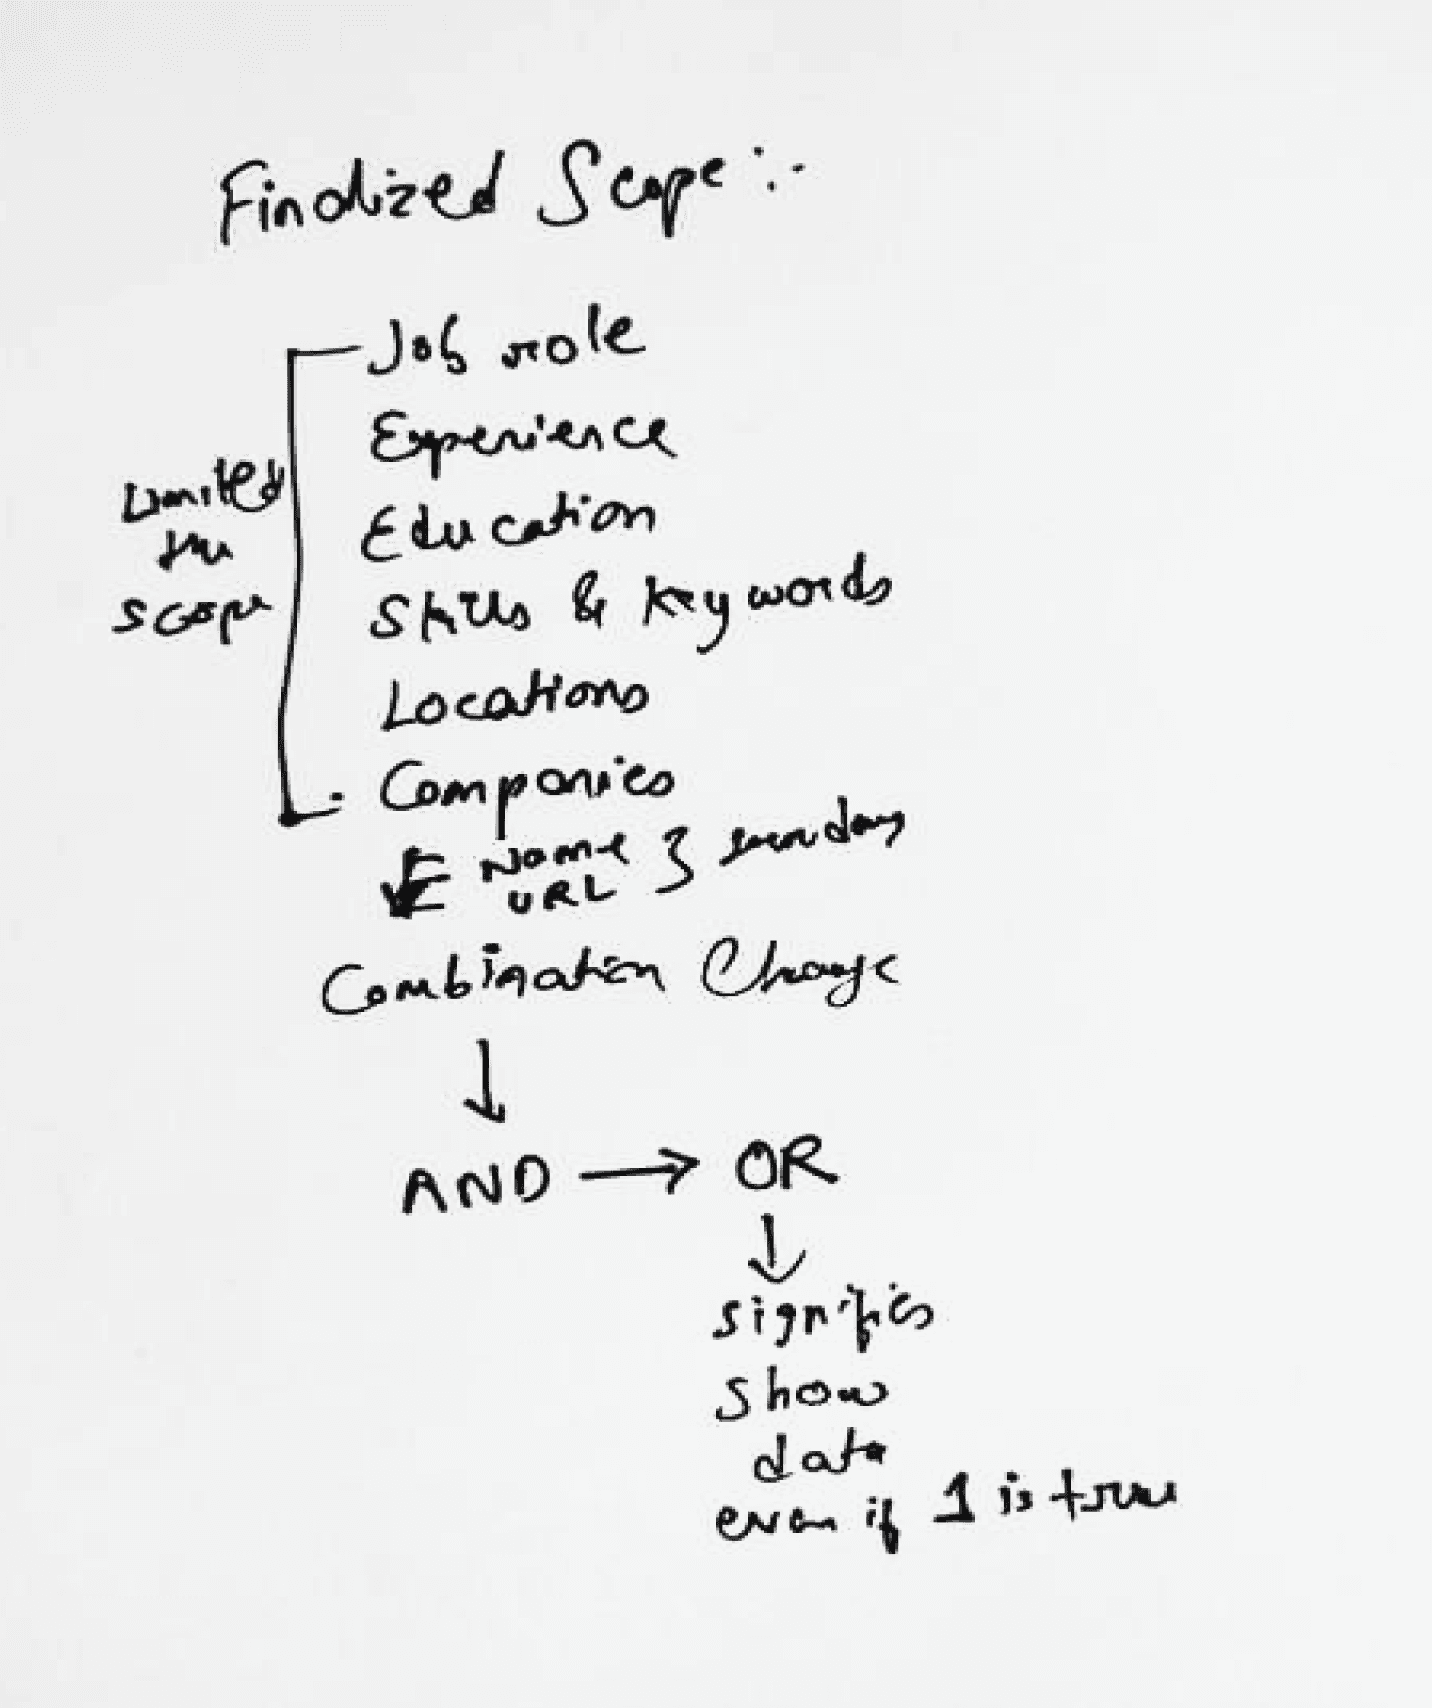 Finalized Scope :-
Job role
Experience
Education
Skills & Keywords
Locations
Companies
Limited
the
scope
Name
URL
Combination Change
↓
AND → OR
↓
signifies
show
data
even if 1 is true